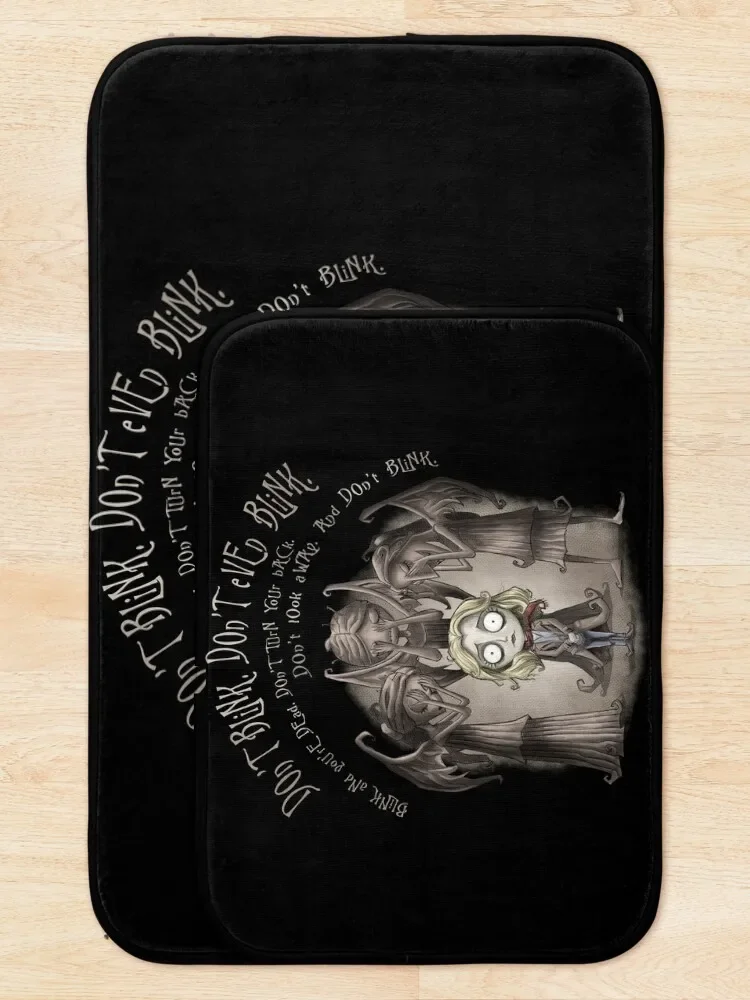 DOn'T BLiNK. DOn'T eVEn BLiNK.
DOn'T TUrN YoUr bACk
DOn't BLiNK.
DOn'T BLiNK. DOn'T eVEn BLiNK.
BLiNK and you'rE DEad. DOn'T TUrN YoUr bACk.
DOn't lOOk aWAy. And DOn't BLiNK.